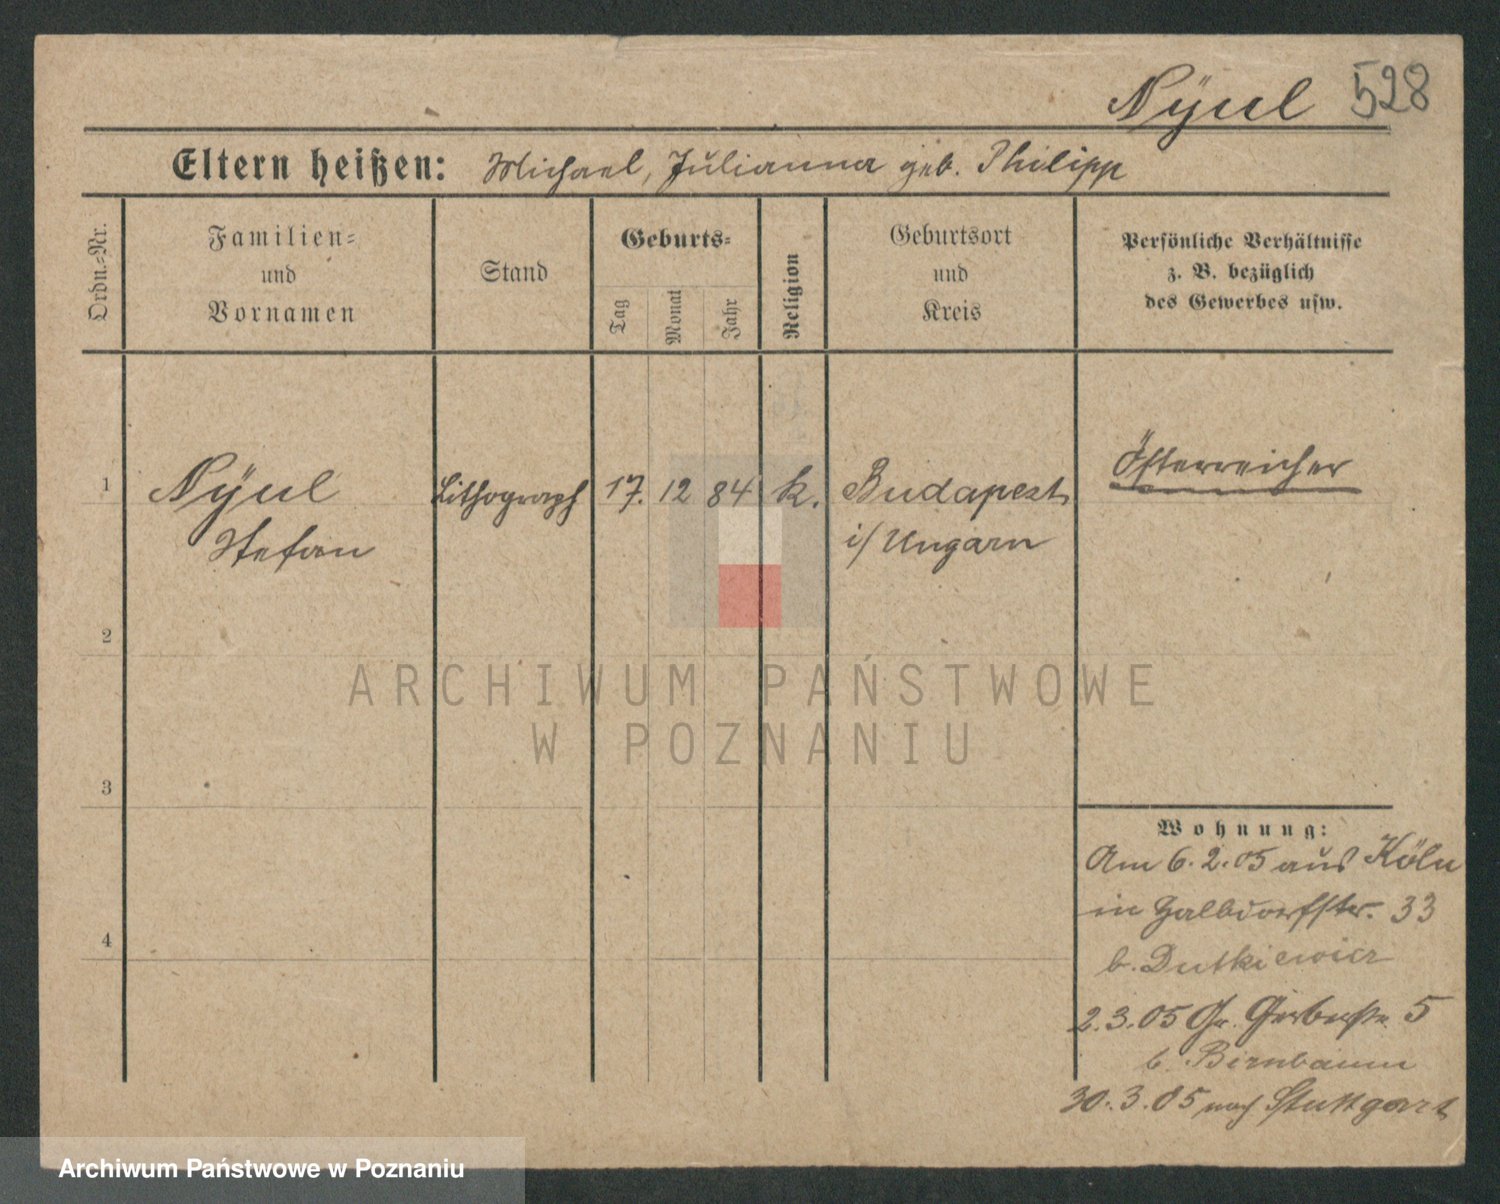 Nÿul 528
Eltern heißen: Michael, Julianna geb. Philipp
Ordn.-Nr.
Familien-
und
Vornamen
Stand
Geburts-
Tag
Monat
Jahr
Religion
Geburtsort
und
Kreis
Persönliche Verhältnisse
z. B. bezüglich
des Gewerbes usw.
1 Nÿul Lithograph 17. 12 84 k. Budapest Österreicher
Stefan i/ Ungarn
2
ARCHIWUM PAŃSTWOWE
W POZNANIU
3
Wohnung:
Am 6.2.05 aus Köln
in Halbdorfstr. 33
b. Dutkiewicz
4
2.3.05 Gr. Gerberstr. 5
b. Birnbaum
30.3.05 nach Stuttgart
Archiwum Państwowe w Poznaniu